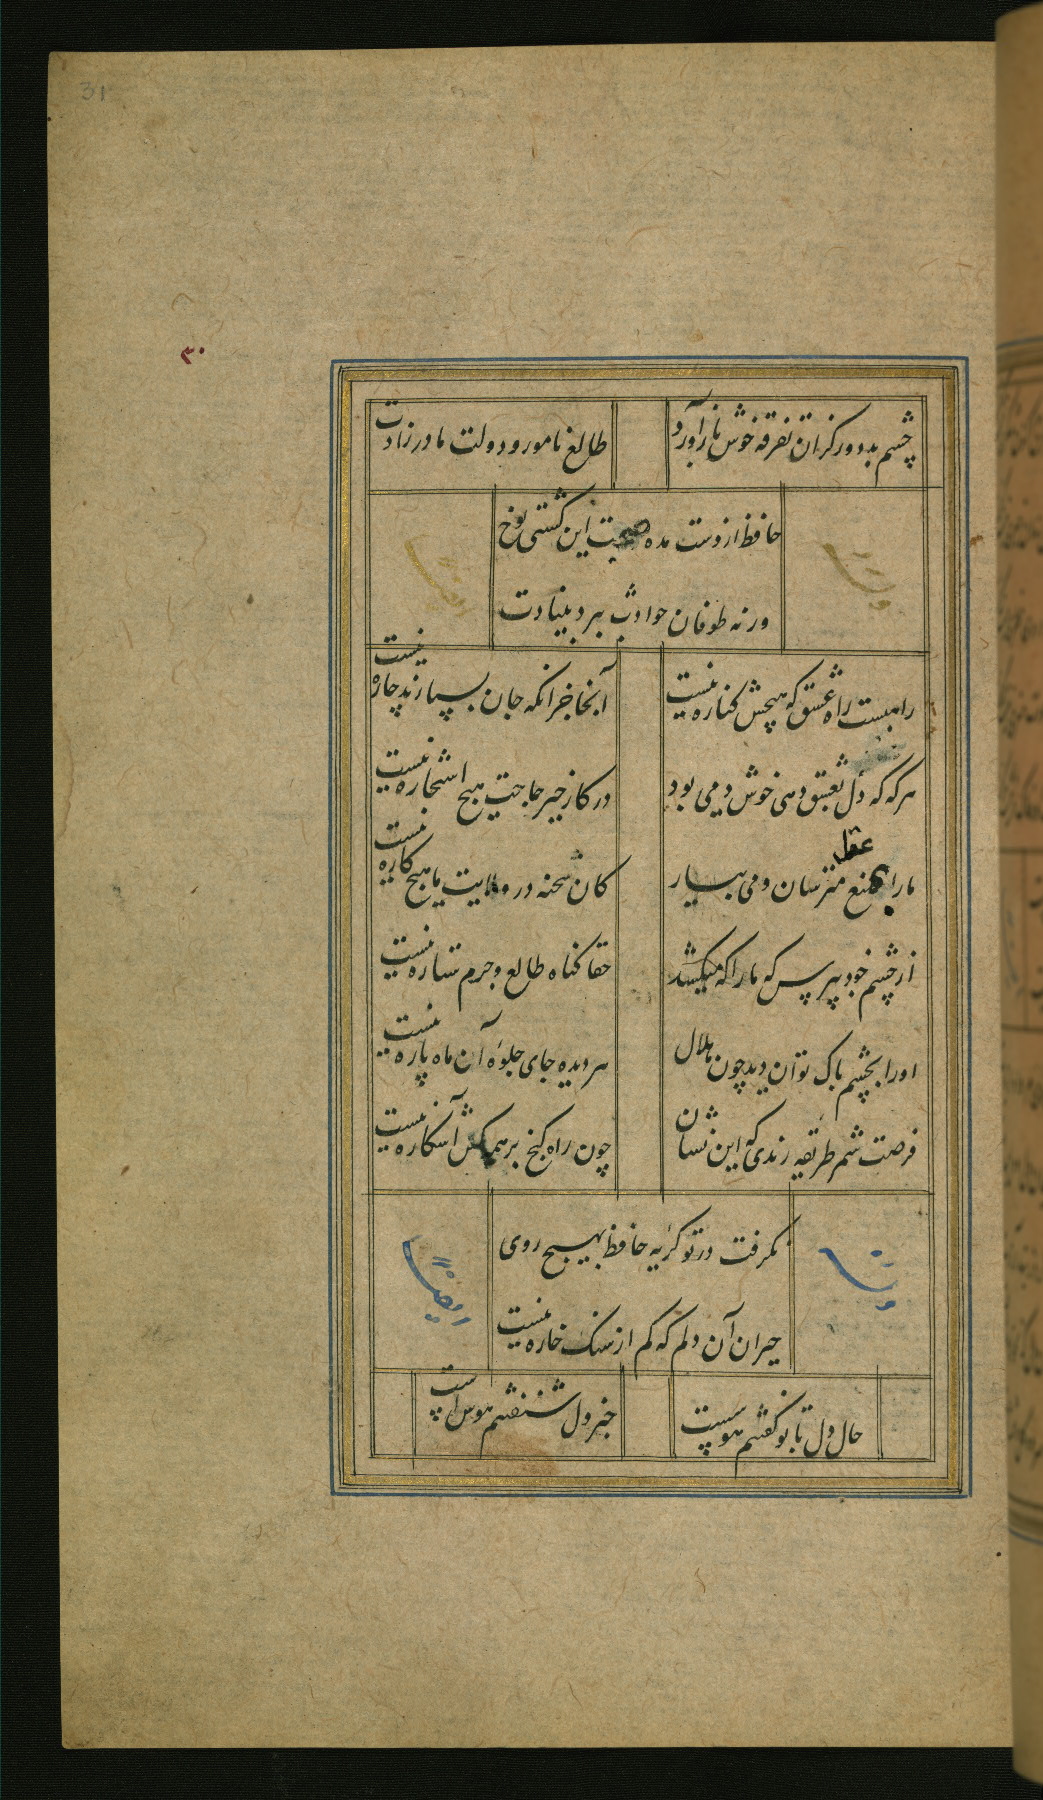 31
۳۰
چشم بد دور کزان تفرقه خوش باز آورد
طالع نامور و دولت مادرزادت
حافظ از دست مده صحبت این کشتی نوح
ورنه طوفان حوادث ببرد بنیادت
راهیست راه عشق که هیچش کناره نیست
آنجا جز انکه جان بسپارند چاره نیست
هر که که دل بعشق دهی خوش دمی بود
در کار خیر حاجت هیچ استخاره نیست
ما را بمنع عقل مترسان و می بیار
کان شحنه در ولایت ما هیچ کاره نیست
از چشم خود بپرس که ما را که میکشد
حقا کناه طالع و جرم ستاره نیست
او را بچشم پاک توان دید چون هلال
هر دیده جای جلوه آن ماه پاره نیست
فرصت شمر طریقه رندی که این نشان
چون راه کنج بر همه کس آشکاره نیست
نکرفت در تو کریه حافظ بهیچ روی
حیران آن دلم که کم از سنک خاره نیست
وله
ایضا
حال دل با تو کفتنم هوسست
خبر دل شنفتنم هوس است